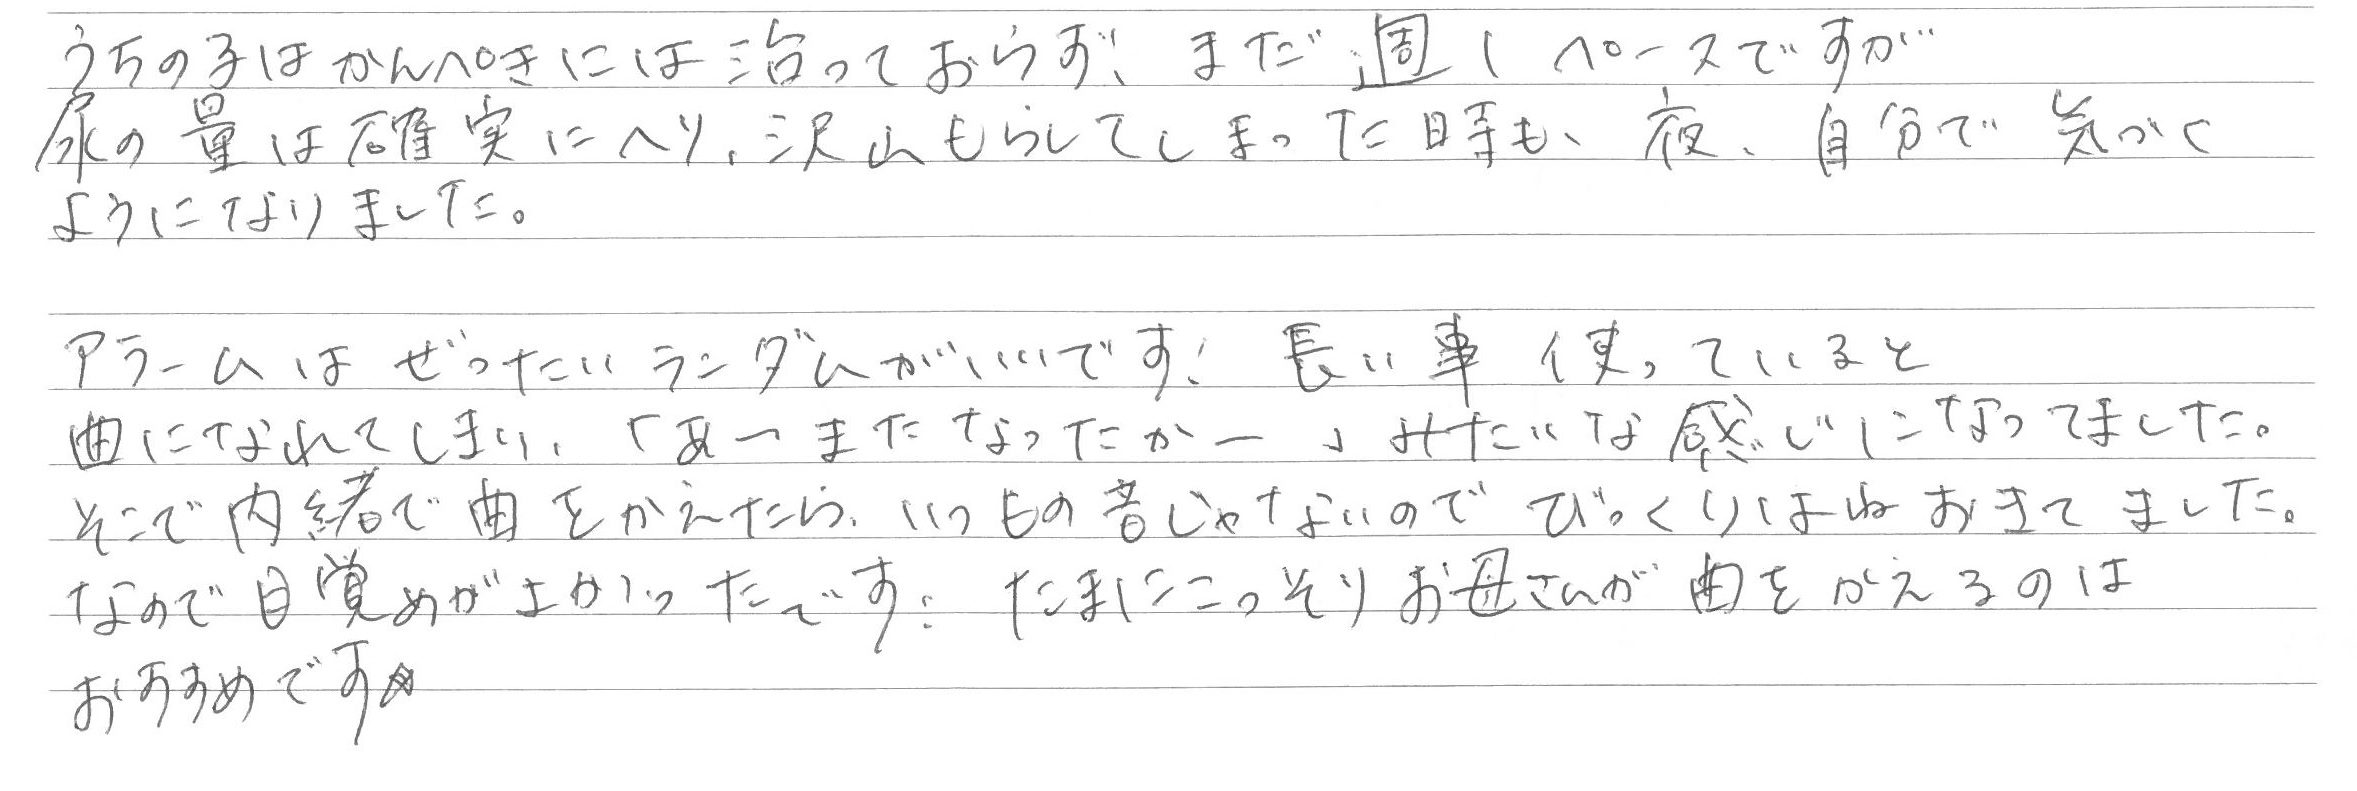 うちの子はかんぺきには治っておらず、まだ週1ペースですが
尿の量は確実にへり、沢山もらしてしまった時も、夜、自分で気づく
ようになりました。
アラームはぜったいランダムがいいです！長い事使っていると
曲になれてしまい、「あーまたなったかー」みたいな感じになってました。
そこで内緒で曲をかえたら、いつもの音じゃないのでびっくりはねおきてました。
なので目覚めがよかったです！たまにこっそりお母さんが曲をかえるのは
おすすめです☆